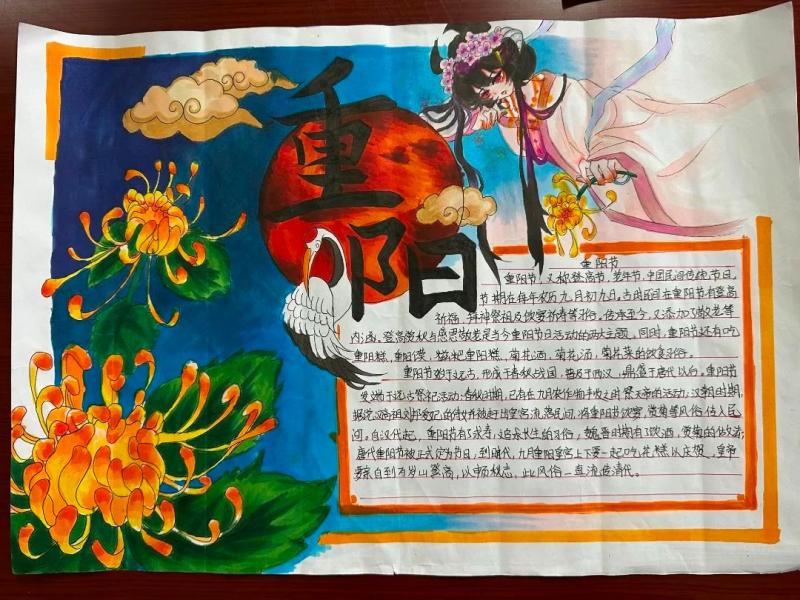 重阳
重阳节
重阳节，又称登高节、老年节，中国民间传统节日，
节期在每年农历九月初九，古时民间在重阳节有登高
祈福、拜神祭祖及饮宴祈寿等习俗。传承至今，又添加了敬老等
内涵，登高赏秋与感恩敬老是当今重阳节日活动的两大主题，同时，重阳节还有吃
重阳糕，重阳馍，糍粑重阳糕，菊花酒，菊花酒，菊花茶的饮食习俗。
重阳节始于远古，形成于春秋战国，普及于西汉，鼎盛于唐代以后。重阳节
发端于远古祭祀活动，春秋时期，已有在九月农作物丰收之时祭天帝的活动，汉朝时期，
据说汉高祖刘邦爱妃的侍女被赶出皇宫流落民间，将重阳节饮宴，赏菊等风俗传入民
间，自汉代起，重阳节有了求寿，追求长生的习俗，魏晋时期有了饮酒，赏菊的做法；
唐代重阳节被正式定为节日，到明代，九月重阳皇宫上下要一起吃花糕以庆贺，皇帝
要亲自到万岁山登高，以畅秋志，此风俗一直流传清代。